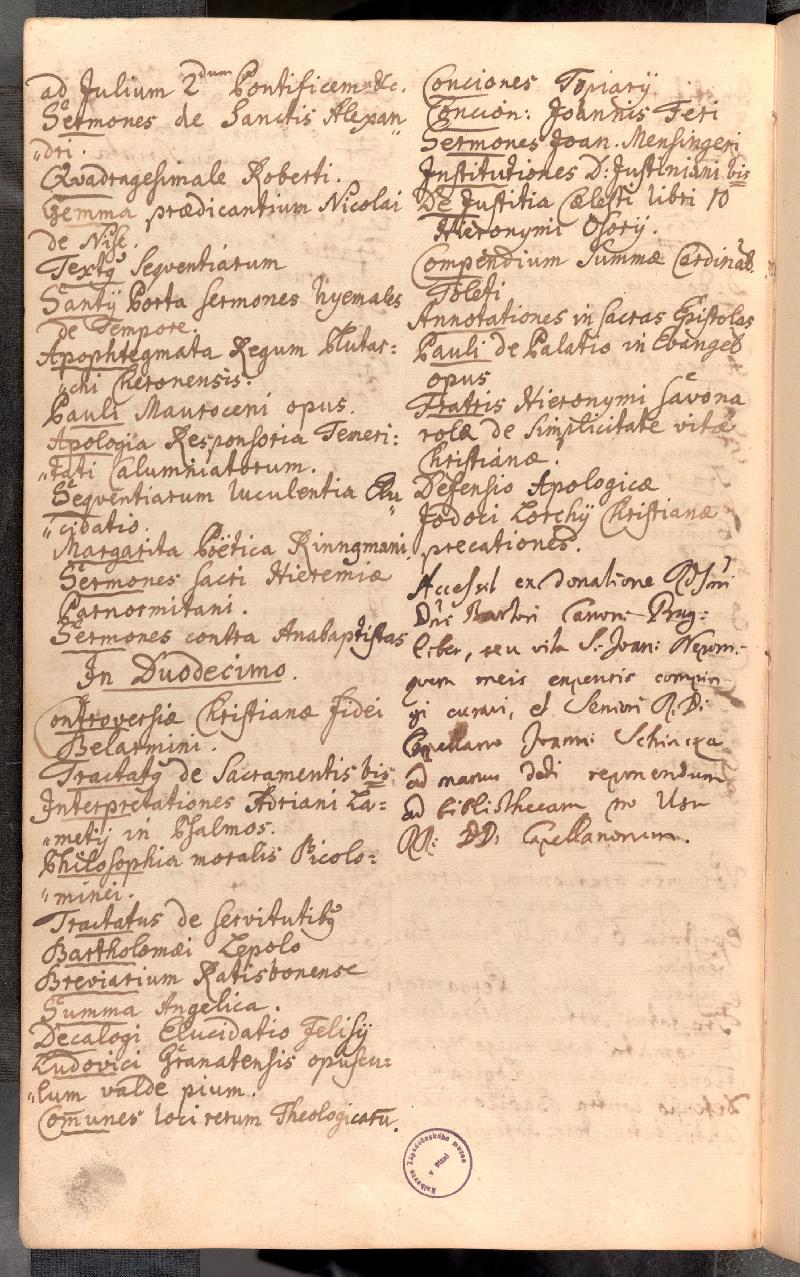 ad Julium 2dum Pontificem &c.
Sermones de Sanctis Alexan„
„dri.
Qvadragesimale Roberti.
Gemma prædicantium Nicolai
de Nise.
Textq Seqventiarum
Santij Porta sermones hyemales
de Tempore.
Apophtegmata Regum Plutar:
„chi Cheronensis.
Pauli Mauroceni opus.
Apologia Responsoria Temeri:
„tati Calumniatorum.
Seqventiarum luculentia Elu„
„cidatio.
Margarita Poëtica Rinngmani.
Sermones sacri Hieremiæ
Parnormitani.
Sermones contra Anabaptistas
In Duodecimo.
Controversiæ Christianæ fidei
Belarmini.
Tractatq de Sacramentis bis
Interpretationes Adriani La=
„metij in Psalmos.
Philosophia moralis Picolo:
„minei.
Tractatus de servitutibq
Bartholomæi Zepolo
Breviarium Ratisbonense
Summa Angelica.
Decalogi Elucidatio Felisij
Ludovici Granatensis opuscu:
„lum valde pium.
Com̄unes loci rerum Theologicarū.
Conciones Topiarij
Concion: Joannis Feri
Sermones Joan. Mensingeri
Institutiones D: Justiniani bis
De Justitia Cælesti libri 10
Hieronymi Osorij.
Compendium Summæ Cardinal
Toleti
Annotationes in sacras Epistolas
Pauli de Palatio in Evangel
opus
Fratris Hieronymi Savona
rolæ de simplicitate vitæ
Christianæ.
Defensio Apologicæ
Jodoci Lorchij Christianæ
precationes.
Accessit ex donatione
Canon: Prag:
Liber, seu vita S. Joan: Nepom:
quem meis expensis compin
gi curavi, et Seniori R. D:
Capellano Joanni
ad manus dedi reponendum
ad bibliothecam pro Usu
RR: DD: Capellanorum.
Knihovna Západočeského muzea
v Plzni